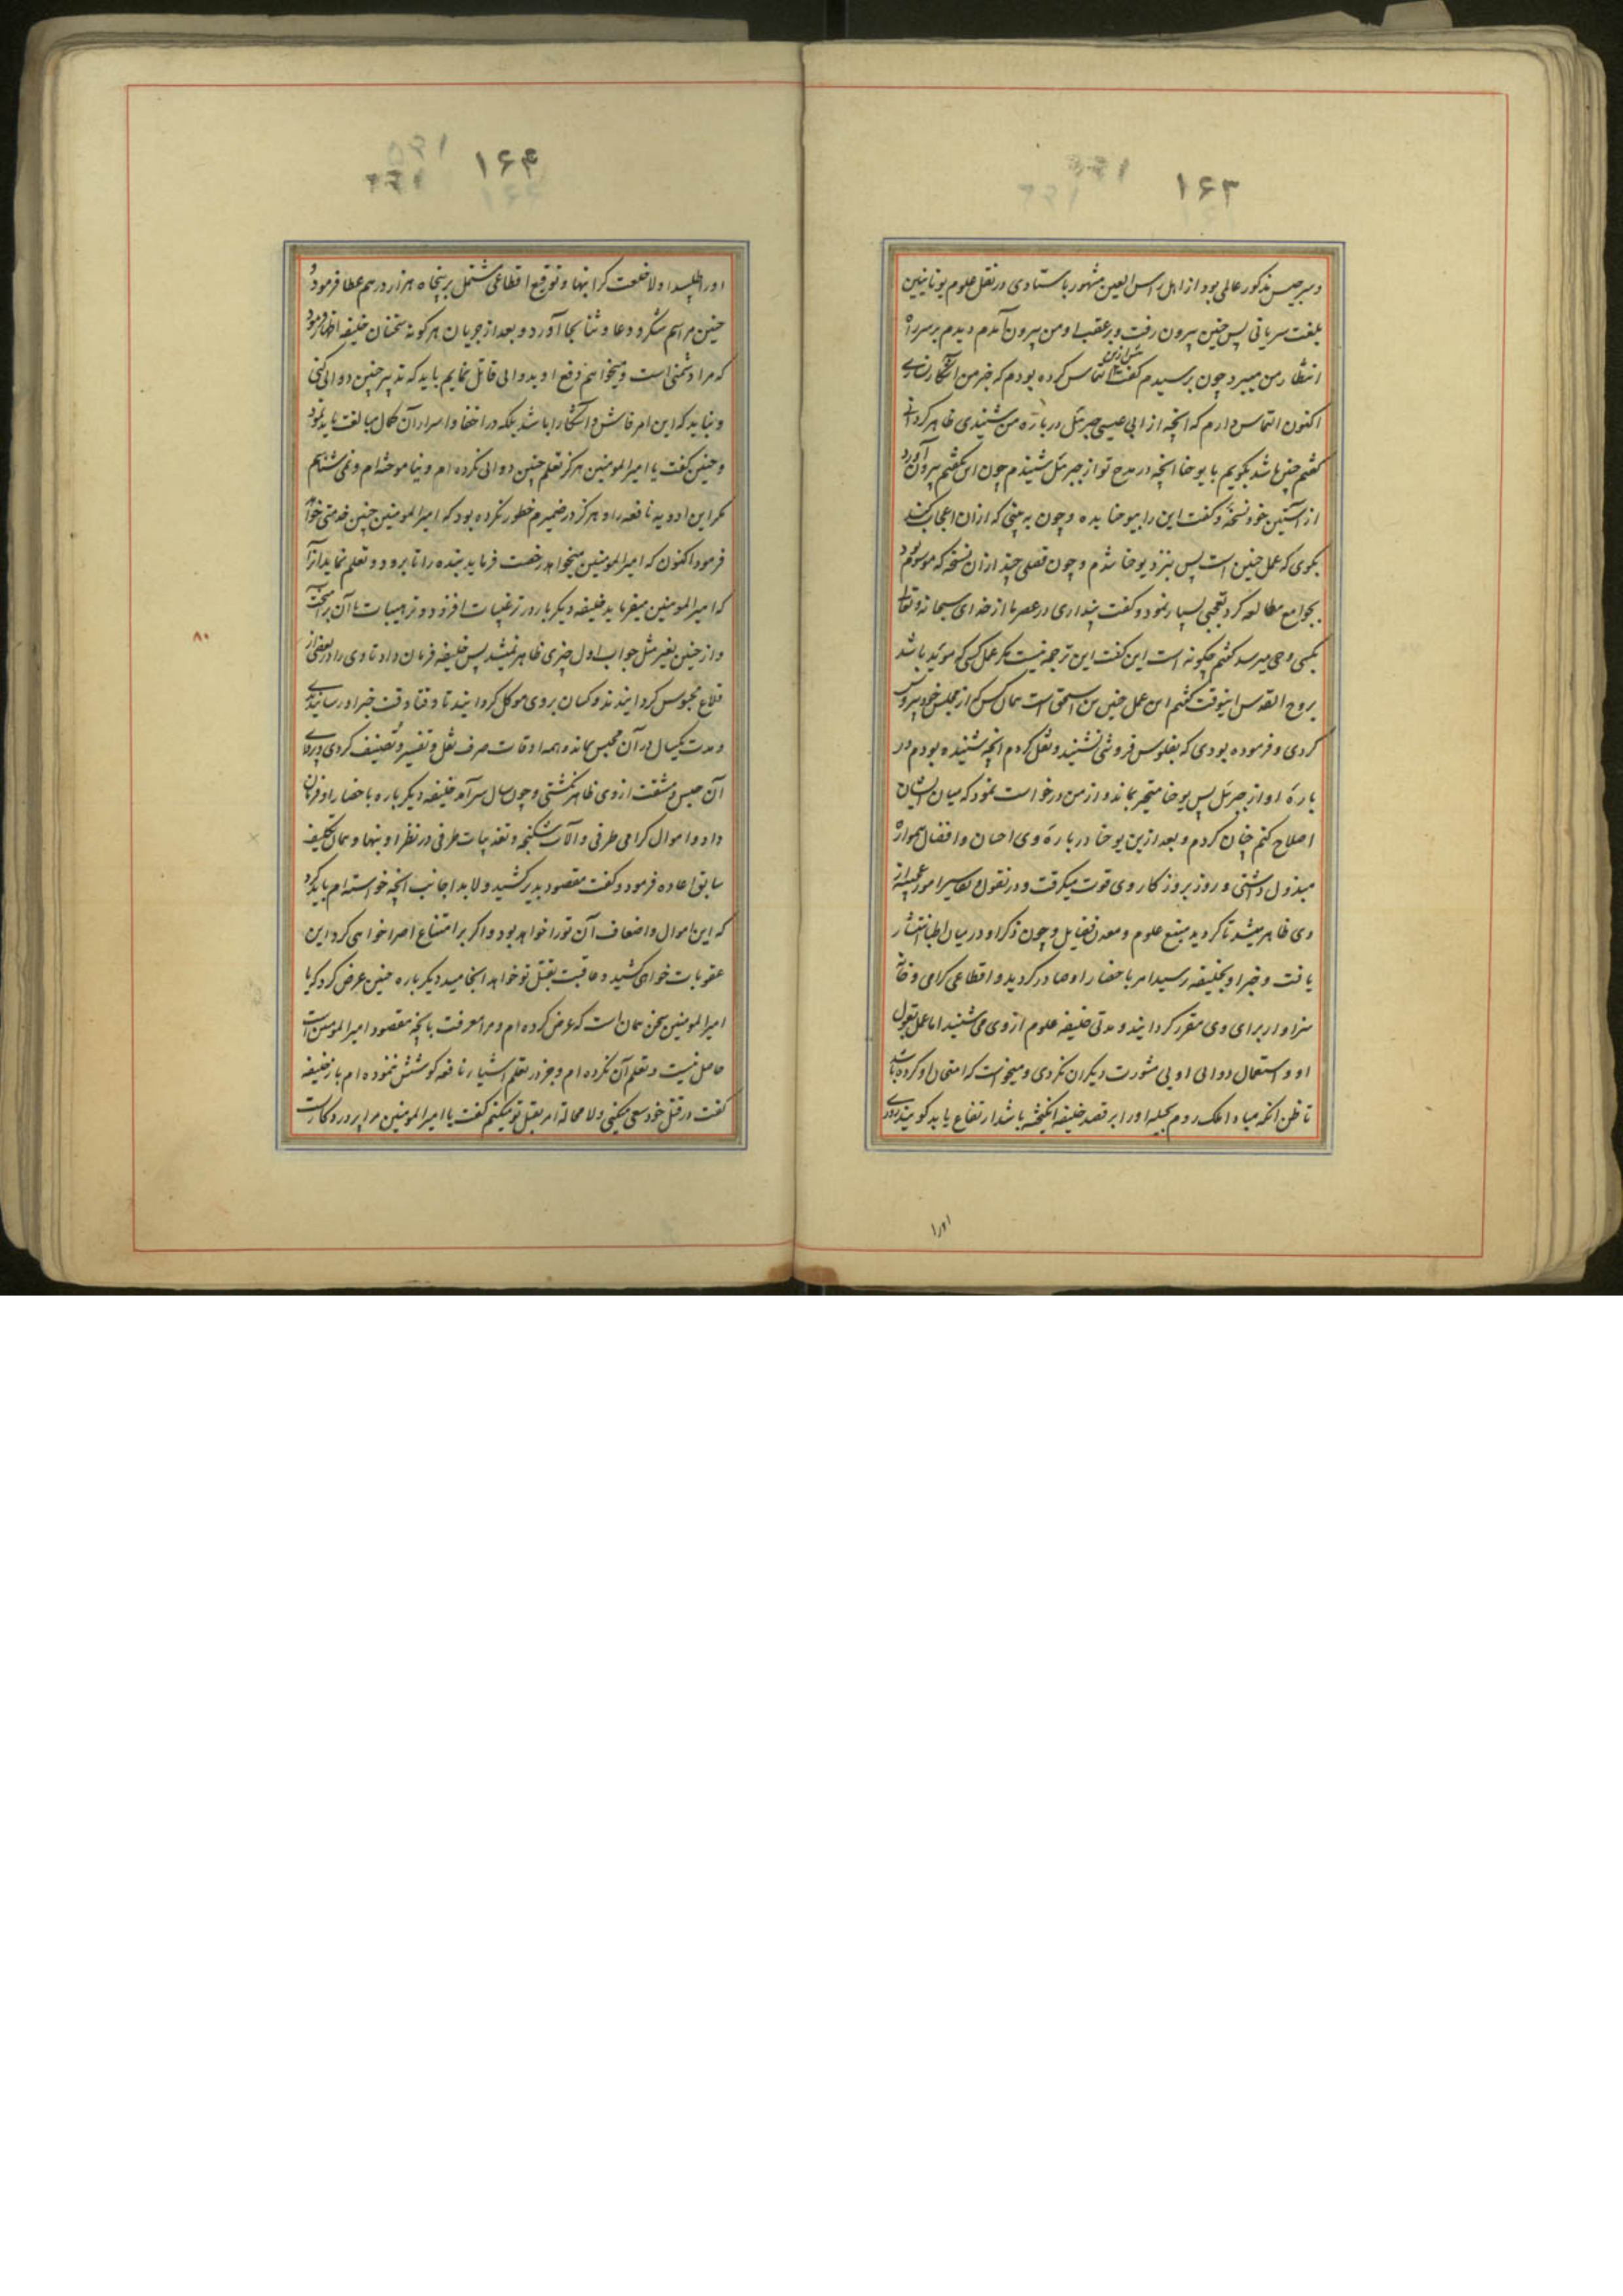 ۱۶۳
و سرجیس مذکور عالمی بود از اهل راس العین مشهور باستادی در نقل علوم یونانیین
بلغت سریانی پس حنین بیرون رفت و بر عقب او من بیرون آمدم دیدم بر سر راه
انتظار من میبرد چون برسیدم گفت التماس کرده بودم که خبر من آشکارا نسازی
اکنون التماس دارم که انچه از ابی عیسی جبرئل در باره من شنیدی ظاهر کردانی
گفتم چنین باشد بگویم با یوحنا انچه در مدح تو از جبرئل شنیدم چون این بگفتم بیرون آورد
از آستین خود نسخهٔ و گفت این را بیوحنا بده و چون به بینی که ازان اعجاب کند
بگوی که عمل حنین است پس نزد یوحنا شدم و چون فصلی چند ازان نسخه که موسوم بود
بجوامع مطالعه کرد تعجبی بسیار نمود و گفت پنداری در عصر ما از خدای سبحانه و تعالی
بکسی وحی میرسد گفتم چگونه است این گفت این ترجمه نیست مگر عمل کسی که موید باشد
بروح القدس اینوقت گفتم این عمل حنین بن اسحق است همان کس که از مجلس خود بیرونش
کردی و فرموده بودی که بفلوس فروشی نشیند و نقل کردم انچه شنیده بودم در
بارهٔ او از جبرئل پس یوحنا متحیر بماند و از من درخواست نمود که میان ایشان
اصلاح کنم چنان کردم و بعد ازین یوحنا در بارهٔ وی احسان و افضال همواره
مبذول داشتی و روز بروز کار وی قوت میگرفت و در نقول و تفاسیر امور عجیبه از
وی ظاهر میشد تا گردید منبع علوم و معدن فضایل و چون ذکر او در میان اطبا انتشار
یافت و خبر او بخلیفه رسید امر با حضار او صادر گردید و اقطاعی گرامی و خانهٔ
سزاوار برای وی مقرر گردانیند و مدتی خلیفه علوم از وی می شنید اما عمل بقول
او و استعمال دوای او بی مشورت دیگران نکردی و میخواست که امتحان او کرده باشد
تا ظن انکه مبادا ملک روم بحیله او را بر قصد خلیفه انگیخته باشد ارتفاع یابد گویند روزی
اورا
۱۶۴
او را طلبید اولا خلعت گرانبها و توقیع اقطاعی مشتمل بر پنجاه هزار درهم عطا فرمود و
حنین مراسم شکر و دعا و ثنا بجا آورد و بعد از جریان هرگونه سخنان خلیفه اظهار فرمود
که مرا دشمنی است و میخواهم دفع او بدوایی قاتل نمایم باید که تدبیر چنین دوایی کنی
و نباید که این امر فاش و آشکارا باشد بلکه در اخفا و اسرار آن کمال مبالغت باید نمود
و حنین گفت یا امیرالمومنین هرگز تعلم چنین دوایی نکرده ام و نیاموخته ام و نمی شناسم
مگر این ادویه نافعه را و هرگز در ضمیرم خطور نکرده بود که امیرالمومنین چنین خدمتی خواهد
فرمود اکنون که امیرالمومنین میخواهد رخصت فرماید بنده را تا برود و تعلم نماید آنرا
که امیرالمومنین میفرماید خلیفه دیگر بار در ترغیبات افزود و ترهیبات با آن برآمیخت
و از حنین بغیر مثل جواب اول چیزی ظاهر نمیشد پس خلیفه فرمان داد تا وی را در بعضی از
قلاع محبوس گردانیدند و کسان بر وی موکل گردانیند تا وقتا وقت خبر او رسانیدندی
و مدت یکسال در آن محبس بماند و همه اوقات صرف نقل و تفسیر و تصنیف کردی و پروای
آن حبس و مشقت از وی ظاهر نگشتی و چون سال سرآمد خلیفه دیگر باره با حضار او فرمان
داد و اموال گرامی طرفی و آلات شکنجه و تعذیبات طرفی در نظر او بنهاد و همان تکلیف
سابق اعاده فرمود و گفت مقصود بدیر کشید و لابد اجانب انچه خواسته ام باید کرد
که این اموال و اضعاف آن تورا خواهد بود و اگر بر امتناع اصرار خواهی کرد این
عقوبات خواهی کشید و عاقبت بقتل تو خواهد انجامید دیگر باره حنین عرض کرد که یا
امیرالمومنین سخن همان است که عرض کرده ام و مرا معرفت بانچه مقصود امیرالمومنین است
حاصل نیست و تعلم آن نکرده ام و جز در تعلم اشیاء نافعه کوشش ننموده ام باز خلیفه
گفت در قتل خود سعی میکنی و لا محاله امر بقتل تو میکنم گفت یا امیرالمومنین مرا پروردگاریست
۸۰